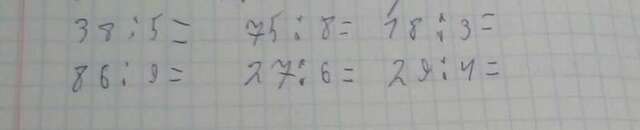 38:5= 75:8= 18:3=
86:9= 27:6= 29:4=